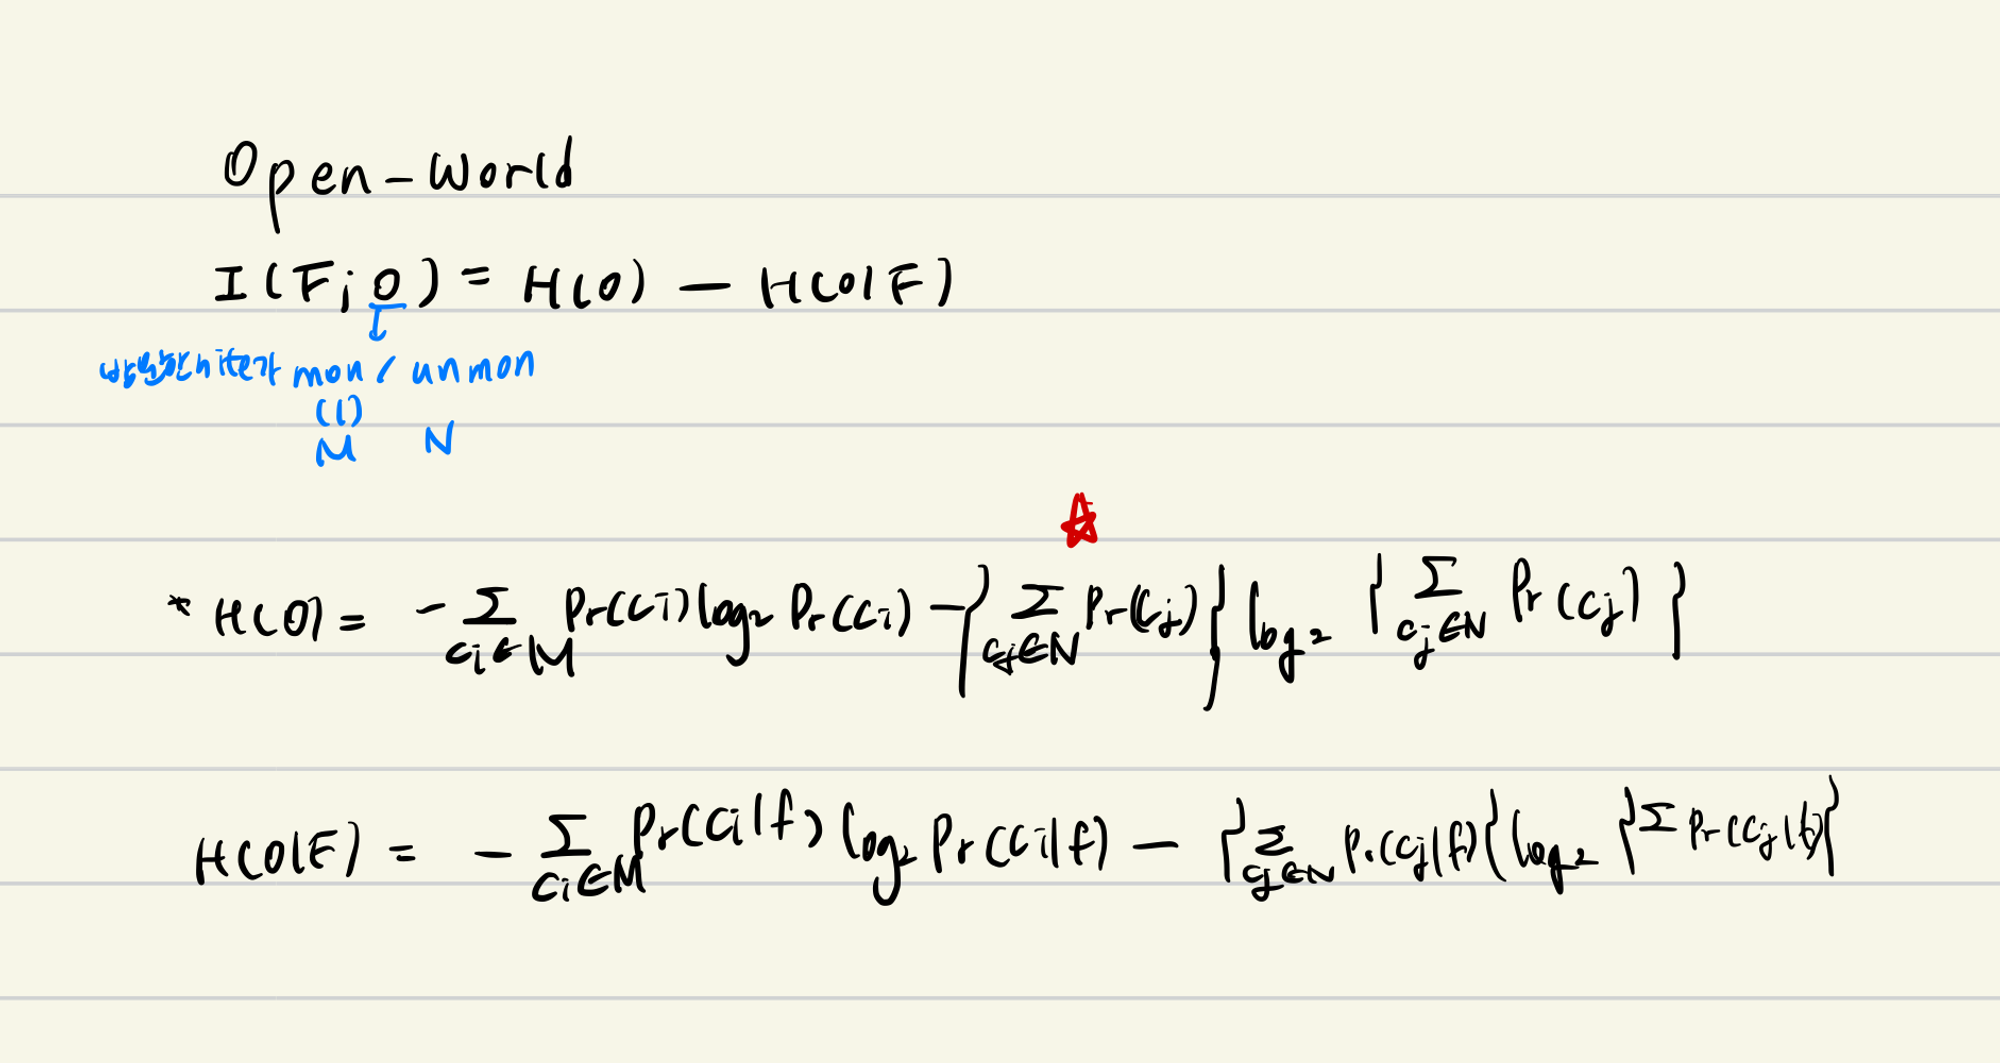 Open-World
I(F;O) = H(O) - H(O|F)
방문한 site가 mon / unmon
(1)
M N
* H(O) = - Σ_{ci∈M} Pr(ci) log₂ Pr(ci) - { Σ_{cj∈N} Pr(cj) } log₂ { Σ_{cj∈N} Pr(cj) }
H(O|F) = - Σ_{ci∈M} Pr(ci|f) log₂ Pr(ci|f) - { Σ_{cj∈N} Pr(cj|f) } log₂ { Σ Pr(cj|f) }